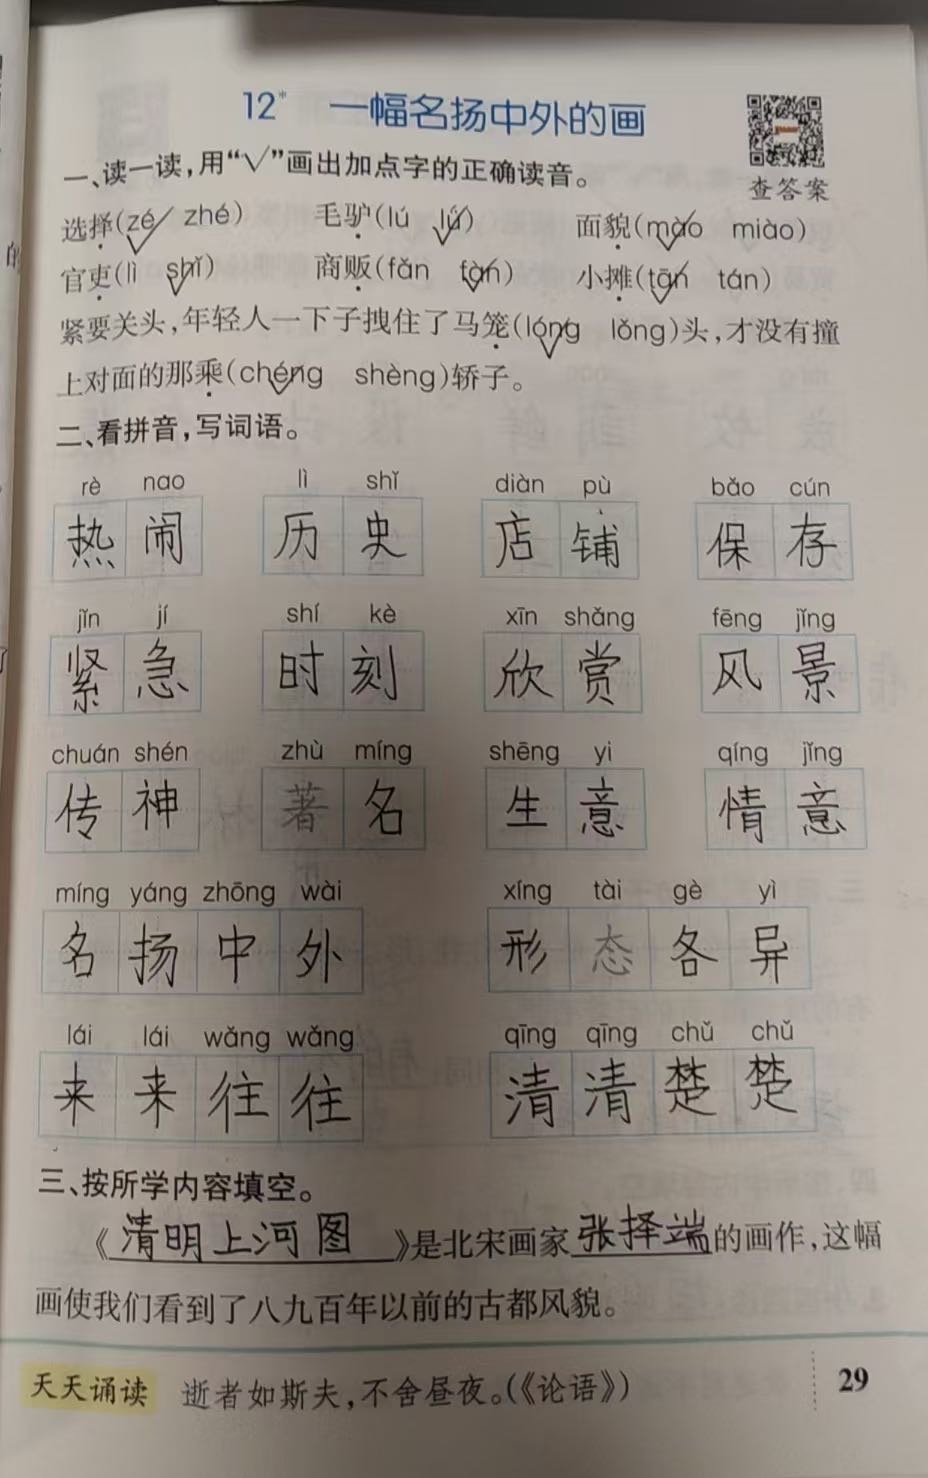 12* 一幅名扬中外的画
查答案
一、读一读,用“√”画出加点字的正确读音。
选择(zé√ zhé) 毛驴(lú lǘ√) 面貌(mào√ miào)
官吏(lì shǐ√) 商贩(fǎn fàn√) 小摊(tān√ tán)
紧要关头,年轻人一下子拽住了马笼(lóng√ lǒng)头,才没有撞
上对面的那乘(chéng√ shèng)轿子。
二、看拼音,写词语。
rè nao lì shǐ diàn pù bǎo cún
热闹 历史 店铺 保存
jǐn jí shí kè xīn shǎng fēng jǐng
紧急 时刻 欣赏 风景
chuán shén zhù míng shēng yi qíng jǐng
传神 著名 生意 情意
míng yáng zhōng wài xíng tài gè yì
名扬中外 形态各异
lái lái wǎng wǎng qīng qīng chǔ chǔ
来来往往 清清楚楚
三、按所学内容填空。
《清明上河图》是北宋画家张择端的画作,这幅
画使我们看到了八九百年以前的古都风貌。
天天诵读 逝者如斯夫,不舍昼夜。(《论语》) 29